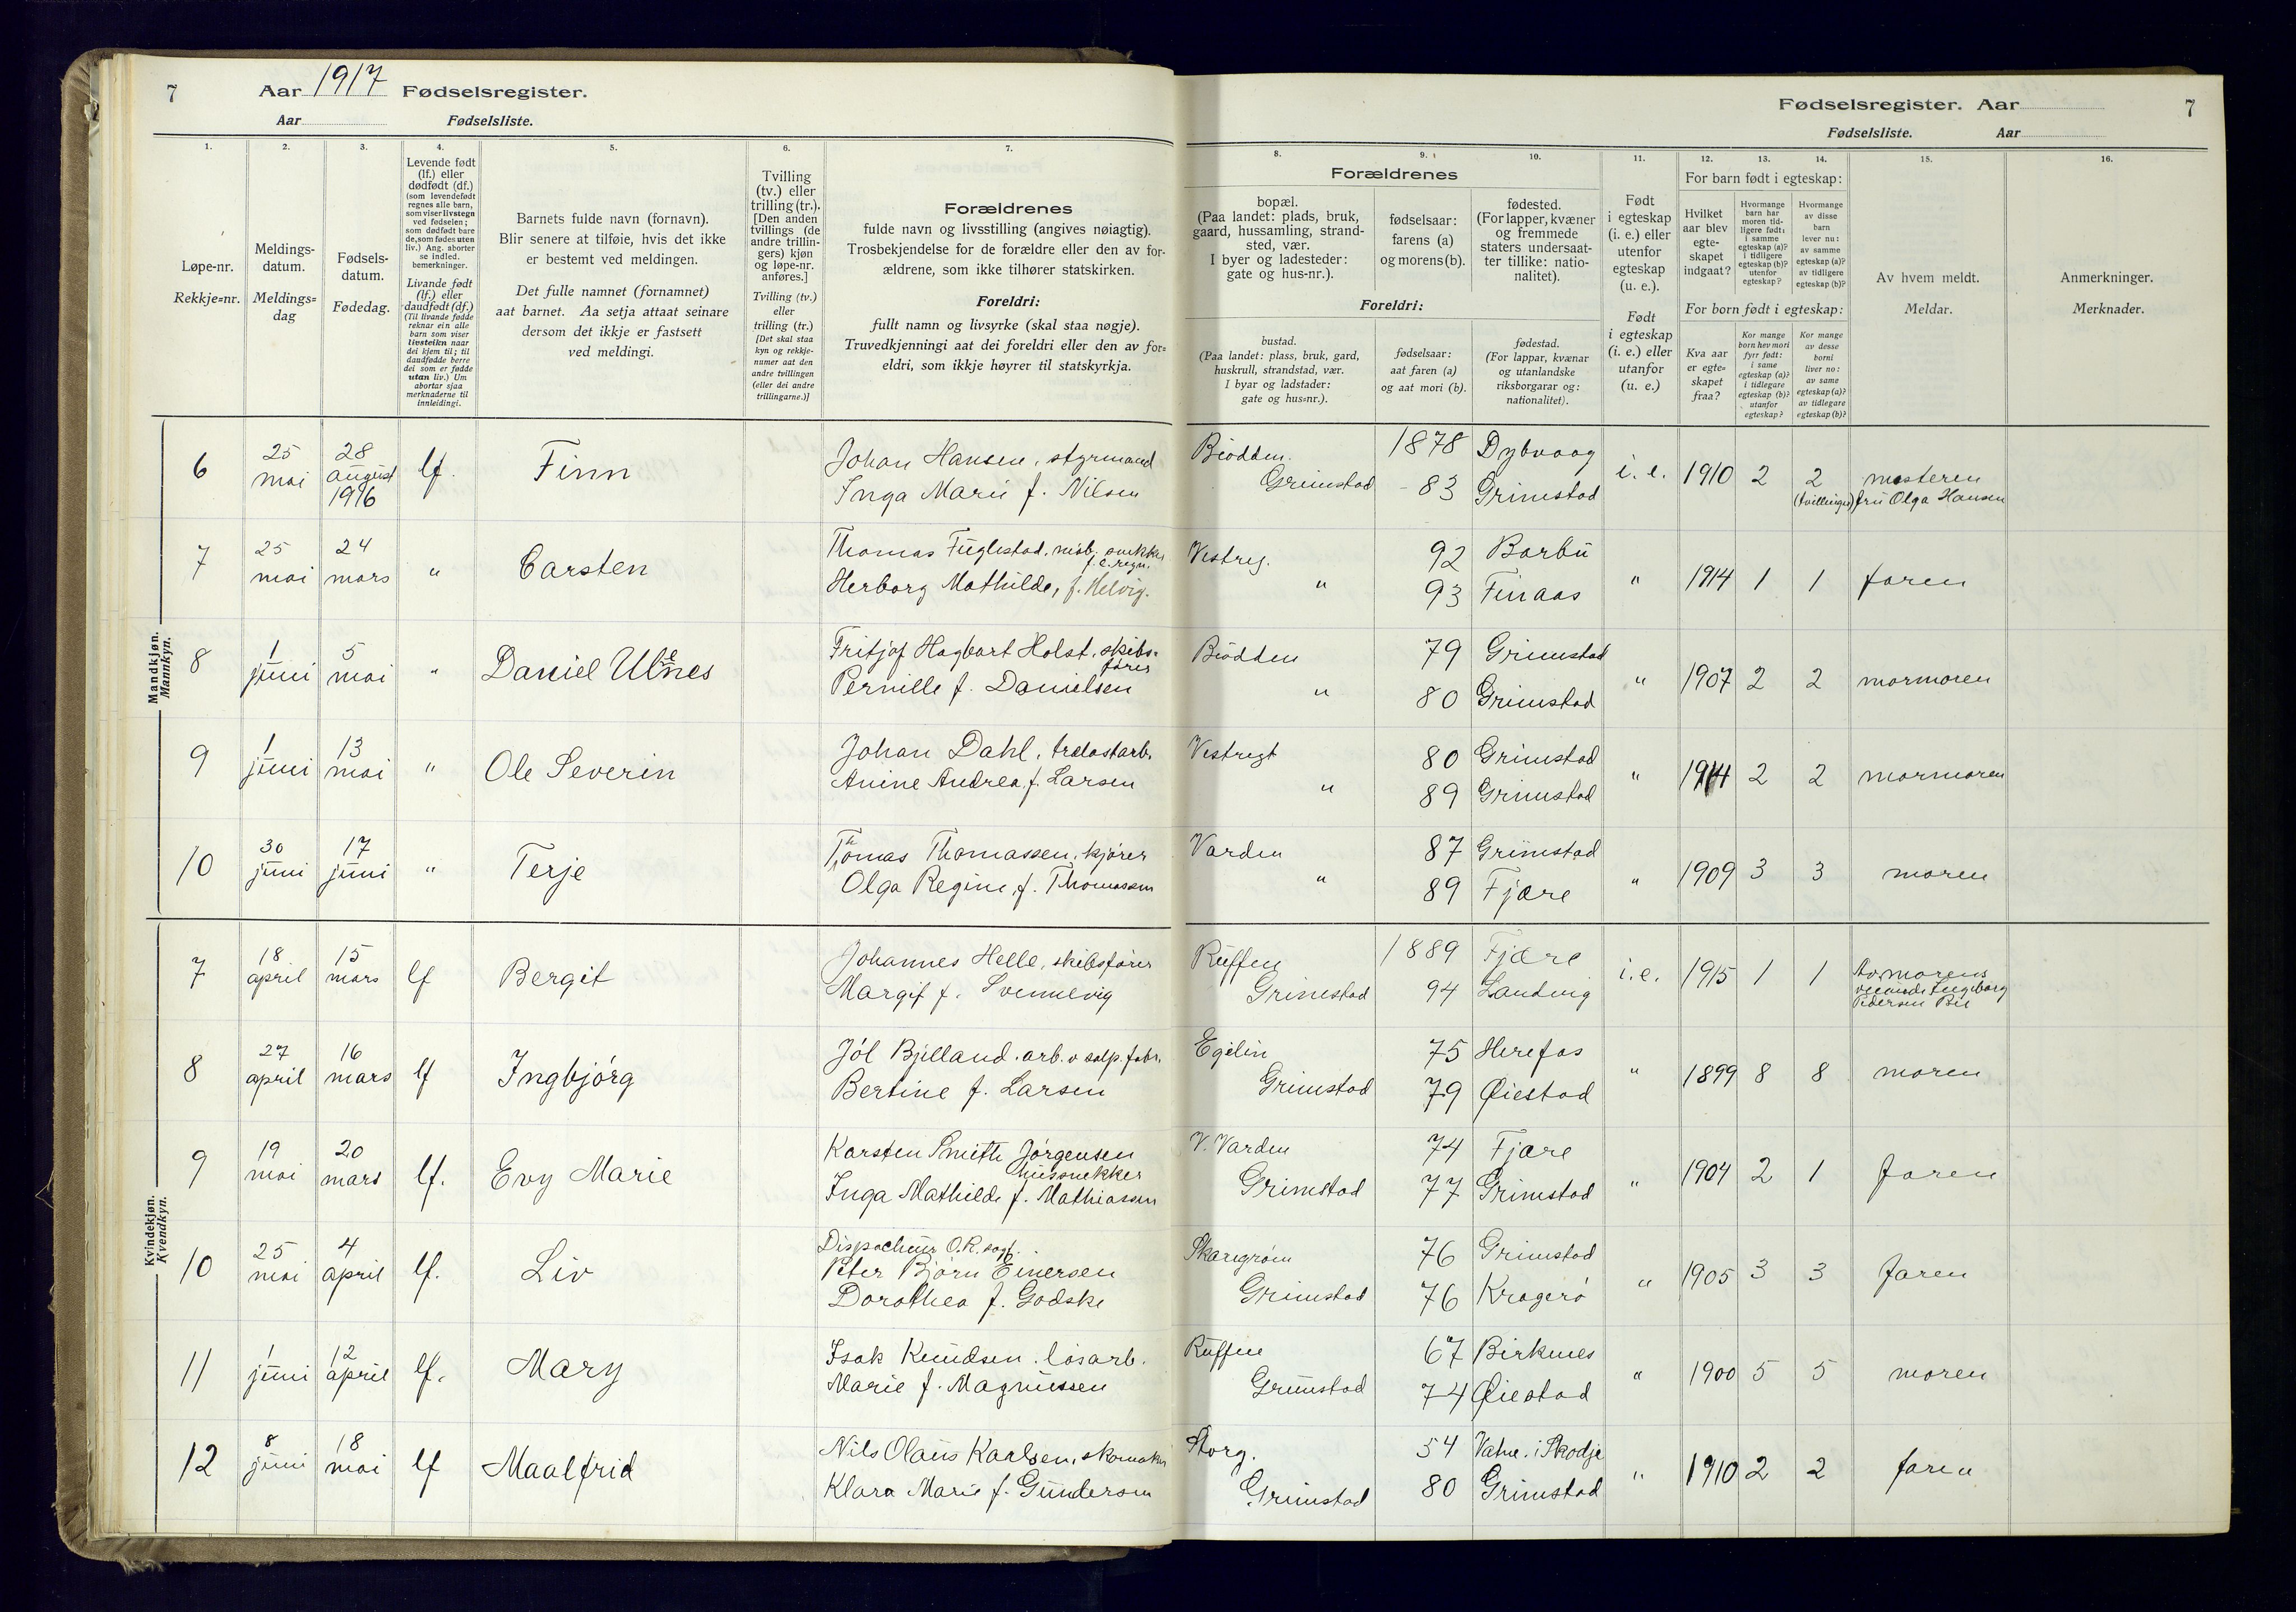 7 Aar 1917 Fødselsregister.
Aar Fødselsliste.
Fødselsregister. Aar 7
Fødselsliste. Aar
1. 2. 3. 4. 5. 6. 7.
Løpe-nr.
Rekkje=nr.
Meldings-
datum.
Meldings=
dag
Fødsels-
datum.
Fødedag.
Levende født
(lf.) eller
dødfødt (df.)
(som levendefødt
regnes alle barn,
som viser livstegn
ved fødselen;
som dødfødt bare
de, som fødes uten
liv.) Ang. aborter
se indled.
bemerkninger.
Livande født
(lf.) eller
daudfødt (df.)
(Til livande fødde
reknar ein alle
barn som viser
livsteikn naar
dei kjem til; til
daudfødde berre
dei som er fødde
utan liv.) Um
abortar sjaa
merknaderne til
innleidingi.
Barnets fulde navn (fornavn).
Blir senere at tilføie, hvis det ikke
er bestemt ved meldingen.
Det fulle namnet (fornamnet)
aat barnet. Aa setja attaat seinare
dersom det ikkje er fastsett
ved meldingi.
Tvilling
(tv.) eller
trilling (tr.).
[Den anden
tvillings (de
andre trillin-
gers) kjøn
og løpe-nr.
anføres.]
Tvilling (tv.)
eller
trilling (tr.)
[Det skal staa
kyn og rekkje-
numer aat den
andre tvillingen
(eller dei andre
trillingarne.)]
Forældrenes
fulde navn og livsstilling (angives nøiagtig).
Trosbekjendelse for de forældre eller den av for-
ældrene, som ikke tilhører statskirken.
Foreldri:
fullt namn og livsyrke (skal staa nøgje).
Truvedkjenningi aat dei foreldri eller den av for=
eldri, som ikkje høyrer til statskyrkja.
8. 9. 10. 11. 12. 13. 14. 15. 16.
Forældrenes
bopæl.
(Paa landet: plads, bruk,
gaard, hussamling, strand-
sted, vær.
I byer og ladesteder:
gate og hus-nr.).
fødselsaar:
farens (a)
og morens (b).
fødested.
(For lapper, kvæner
og fremmede
staters undersaat-
ter tillike: natio-
nalitet).
Foreldri:
bustad.
(Paa landet: plass, bruk, gard,
huskrull, strandstad, vær.
I byar og ladstader:
gate og hus=nr.).
fødselsaar:
aat faren (a)
og aat mori (b).
fødestad.
(For lappar, kvænar
og utanlandske
riksborgarar og:
nationalitet).
Født
i egteskap
(i. e.) eller
utenfor
egteskap
(u. e.).
Født
i egteskap
(i. e.) eller
utanfor
(u. e.)
For barn født i egteskap:
Hvilket
aar blev
egte-
skapet
indgaat?
Hvormange
barn har
moren tid-
ligere født:
i samme
egteskap (a)?
i tidligere
egteskap (b)?
utenfor
egteskap?
Hvormange
av disse
barn
lever nu:
av samme
egteskap (a)?
av tidligere
egteskap (b)?
For born født i egteskap:
Kva aar
er egte=
skapet
fraa?
Kor mange
born hev mori
fyrr født:
i same
egteskap (a)?
i tidlegare
egteskap (b)?
utanfor
egteskap?
Kor mange
av desse
borni
liver no:
av same
egteskap (a)?
av tidlegare
egteskap (b)?
Av hvem meldt.
Meldar.
Anmerkninger.
Merknader.
Mandkjøn.
Mannkyn.
6 25 mai 28 august 1916 lf. Finn
Johan Hansen, styrmand
Inga Marie f. Nilsen
Biodden. 1878 Dybvaag
Grimstad 83 Grimstad
i. e. 1910 2 2 (tvillinger) mosteren
fru Olga Hansen
7 25 mai 24 mars " Carsten
Thomas Fuglestad, møb. snekker
f. e. regn.
Herborg Mathilde, f. Helvig.
Vestreg. 92 Barbu
" 93 Finaas
" 1914 1 1 faren
8 1 juni 5 mai " Daniel Ulenes
Fritjof Hagbart Holst, skibs-
fører
Pernille f. Danielsen
Biodden 79 Grimstad
" 80 Grimstad
" 1907 2 2 mormoren
9 1 juni 13 mai " Ole Severin
Johan Dahl, trelastarb.
Anine Andrea f. Larsen
Vestregt 80 Grimstad
" 89 Grimstad
" 1914 2 2 mormoren
10 30 juni 17 juni " Terje
Thomas Thomassen, kjører
Olga Regine, f. Thomassen
Varden 87 Grimstad
" 89 Fjære
" 1909 3 3 moren
Kvindekjøn.
Kvendkyn.
7 18 april 15 mars lf Bergit
Johannes Helle, skibsfører
Margit f. Svennevig
Ruffen 1889 Fjære
Grimstad 94 Landvig
i. e. 1915 1 1 Av morens
veninde Ingeborg
Pedersen Bie
8 27 april 16 mars lf Ingbjørg
Jól Bjelland. arb. v salp. fabr.
Bertine f. Larsen
Egelin 75 Herefos
Grimstad 79 Øiestad
" 1899 8 8 moren
9 19 mai 20 mars lf. Evy Marie
Karsten Smith Jørgensen
hussnekker
Inga Mathilde f. Mathiassen
V. Varden 74 Fjære
Grimstad 77 Grimstad
" 1904 2 1 faren
10 25 mai 4 april lf. Liv
Dispacheur O.R. sagf.
Peter Bjørn Einersen
Dorothea f. Godske
Skaregrøm 76 Grimstad
Grimstad 76 Kragerø
" 1905 3 3 faren
11 1 juni 12 april lf. Mary
Isak Knudsen. løsarb.
Marie f. Magnussen
Ruffen 67 Birkenes
Grimstad 74 Øiestad
" 1900 5 5 moren
12 8 juni 18 mai lf Maalfrid
Nils Olaus Karlsen, skomaker
Klara Marie f. Gundersen
Storg. 54 Vatne. i Skodje
Grimstad 80 Grimstad
" 1910 2 2 faren